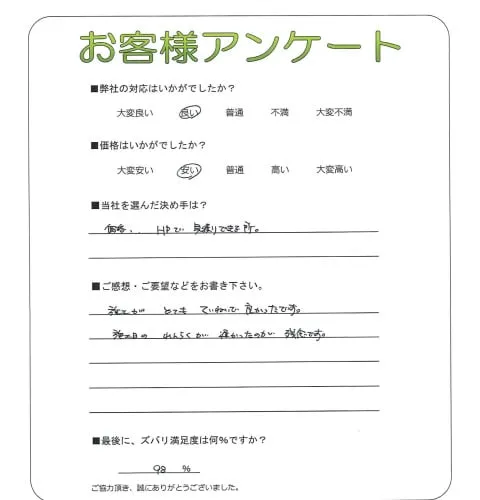 お客様アンケート
■弊社の対応はいかがでしたか？
大変良い 良い 普通 不満 大変不満
■価格はいかがでしたか？
大変安い 安い 普通 高い 大変高い
■当社を選んだ決め手は？
価格、HPで見積りできる所。
■ご感想・ご要望などをお書き下さい。
施工がとてもていねいで良かったです。
施工日のれんらくが遅かったのが残念です。
■最後に、ズバリ満足度は何％ですか？
98 ％
ご協力頂き、誠にありがとうございました。